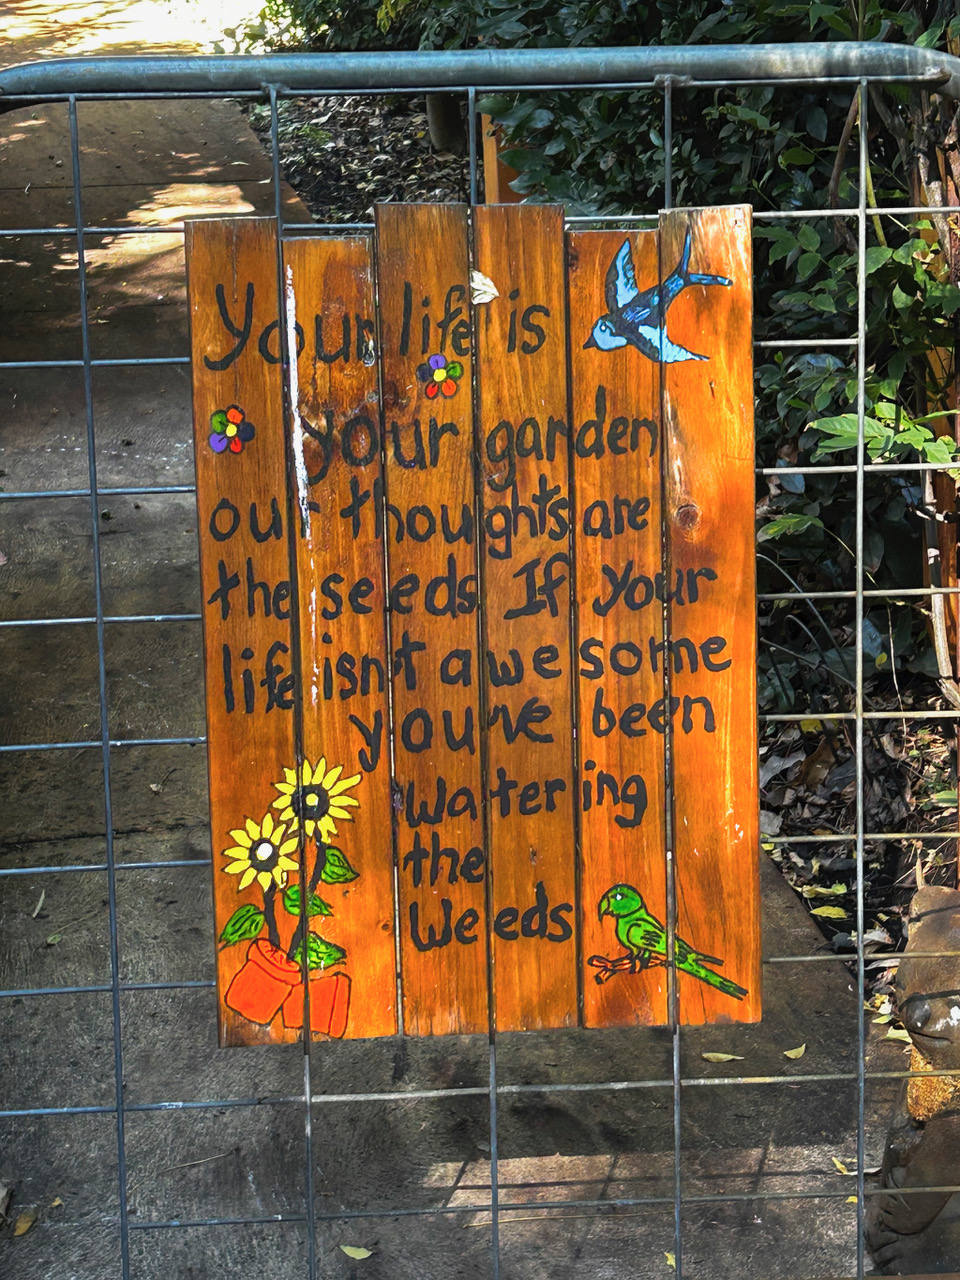 Your life is
your garden
our thoughts are
the seeds If your
life isn't awesome
you've been
Watering
the
Weeds